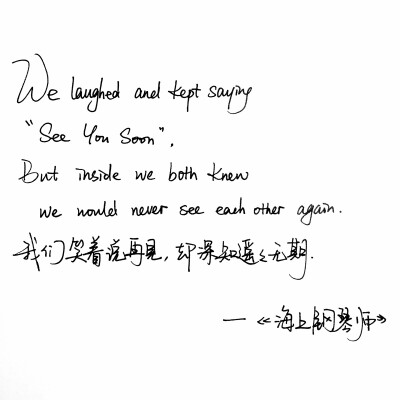 We laughed and kept saying
"See You Soon".
But inside we both knew
we would never see each other again.
我们笑着说再见，却深知遥遥无期.
—《海上钢琴师》